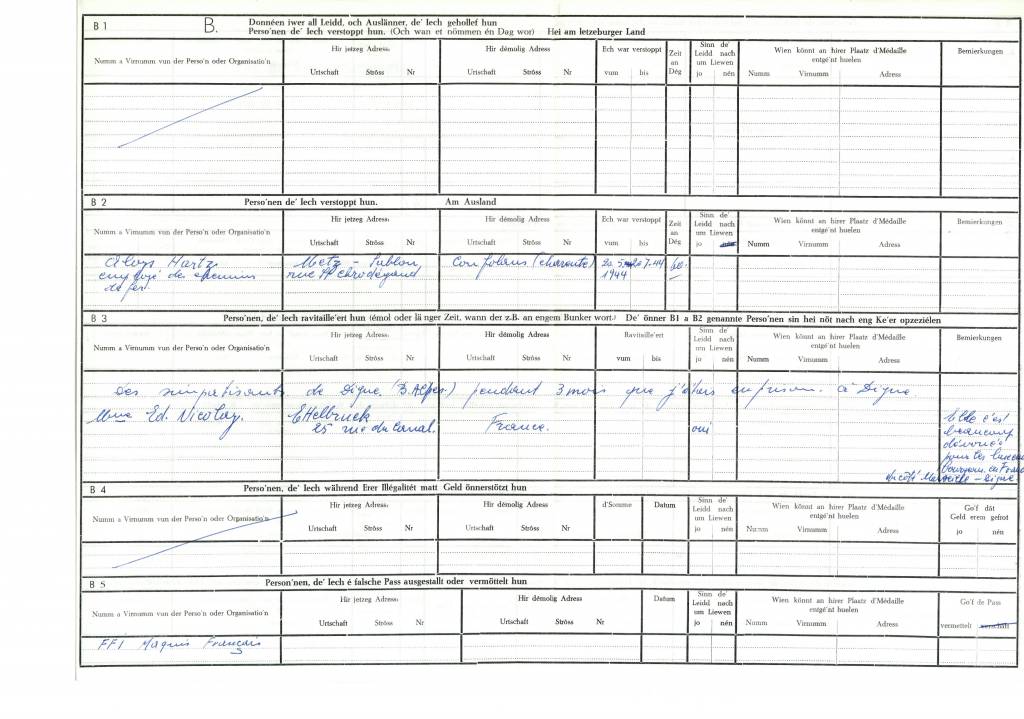 B 1
B.
Donnéen iwer all Leidd, och Auslänner, de' Iech gehollef hun
Perso'nen de' Iech verstoppt hun. (Och wan et nömmen én Dag wor) Hei am letzeburger Land
Numm a Virnumm vun der Perso'n oder Organisatio'n
Hir jetzeg Adress:
Urtschaft Ströss Nr
Hir démolig Adress:
Urtschaft Ströss Nr
Ech war verstoppt
vum bis
Zeit
an
Dég
Sinn de'
Leidd nach
um Liewen
jo nén
Wien könnt an hirer Plaatz d'Médaille
entgé'nt huelen
Numm Virnumm Adress
Bemierkungen
B 2
Perso'nen de' Iech verstoppt hun. Am Ausland
Numm a Virnumm vun der Perso'n oder Organisatio'n
Hir jetzeg Adress:
Urtschaft Ströss Nr
Hir démolig Adress:
Urtschaft Ströss Nr
Ech war verstoppt
vum bis
Zeit
an
Dég
Sinn de'
Leidd nach
um Liewen
jo nén
Wien könnt an hirer Plaatz d'Médaille
entgé'nt huelen
Numm Virnumm Adress
Bemierkungen
Aloys Hartz
employé des chemins
de fer.
Metz - Sablon
rue St Chrodégand
Confolens (charente)
1944
B 3
Perso'nen, de' Iech ravitaille'ert hun (émol oder lä nger Zeit, wann der z.B. an engem Bunker wort.) De' önner B1 a B2 genannte Perso'nen sin hei nôt nach eng Ke'er opzezielen
Numm a Virnumm vun der Perso'n oder Organisatio'n
Hir jetzeg Adress:
Urtschaft Ströss Nr
Hir démolig Adress
Urtschaft Ströss Nr
Ravitaille'ert
vum bis
Sinn de'
Leidd nach
um Liewen
jo nén
Wien könnt an hirer Plaatz d'Médaille
entgé'nt huelen
Numm Virnumm Adress
Bemierkungen
Des simpatisants de Digne (B. Alpes.) pendant 3 mois que j'étais en prison à Digne
Mme Ed. Nicolay.
Ettelbruck
25 rue du Canal.
France.
oui
Elle c'est
beaucoup
dévouée
pour les luxem
bourgeois en France
du côté Marseille - Digne
B 4
Perso'nen, de' Iech während Erer Illégalitét matt Geld önnerstötzt hun
Numm a Virnumm vun der Perso'n oder Organisatio'n
Hir jetzeg Adress:
Urtschaft Ströss Nr
Hir démolig Adress:
Urtschaft Ströss Nr
d'Somme
Datum
Sinn de'
Leidd nach
um Liewen
jo nén
Wien könnt an hirer Plaatz d'Médaille
entgé'nt huelen
Numm Virnumm Adress
Go'f dât
Geld erem gefrot
jo nén
B 5
Person'nen, de' Iech é falsche Pass ausgestallt oder vermöttelt hun
Numm a Virnumm vun der Perso'n oder Organisatio'n
Hir jetzeg Adress:
Urtschaft Ströss Nr
Hir démolig Adress:
Urtschaft Ströss Nr
Datum
Sinn de'
Leidd nach
um Liewen
jo nén
Wien könnt an hirer Plaatz d'Médaille
entgé'nt huelen
Numm Virnumm Adress
Go'f de Pass
vermettelt
FFI Maquis Français